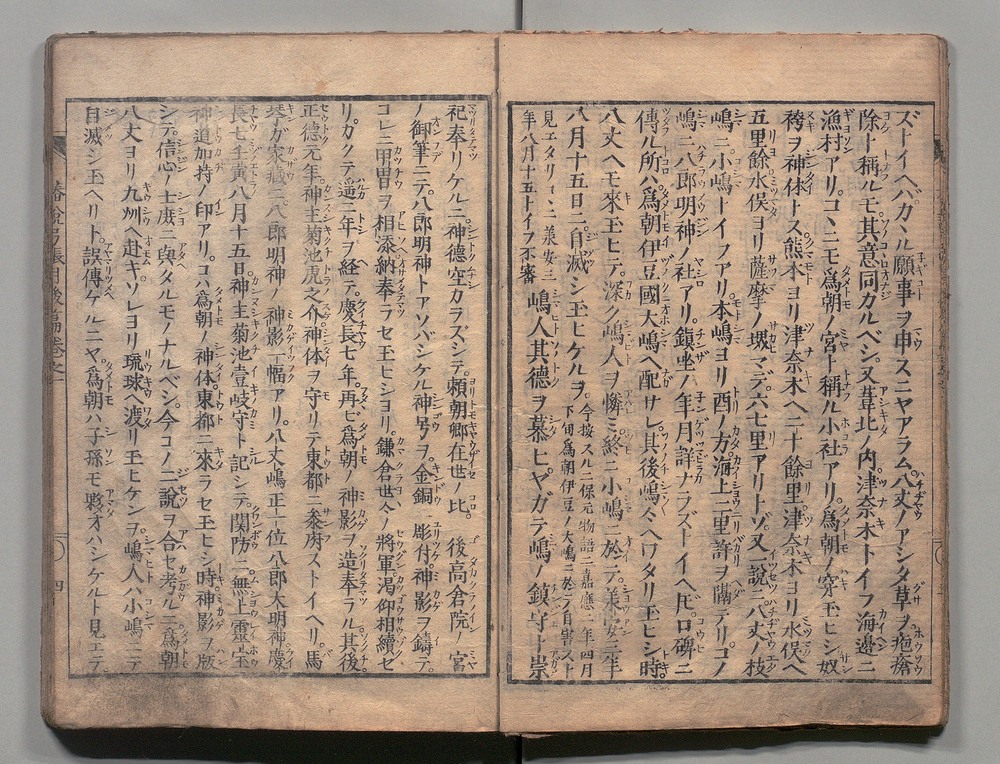 ズトイヘバカヽル願事ヲ申スニヤアラム八丈ノアシタ草ヲ疱瘡
除ト稱ルモ其意同カルベシ又葦北ノ内津奈木トイフ海邉ニ
漁村アリコヽニモ爲朝ノ宮ト稱ル小社アリ爲朝ノ穿玉ヒシ奴
袴ヲ神体トス熊木ヨリ津奈木ヘ二十餘里津奈木ヨリ水俣ヘ
五里餘水俣ヨリ薩摩ノ堺マデ六七里アリトゾ又一説ニ八丈ノ枝
嶋ニ小嶋トイフアリ本嶋ヨリ酉ノ方海上二里許ヲ隔テリコノ
嶋ニ八郎明神ノ社アリ鎮坐ノ年月詳ナラズトイヘ𪜈口碑ニ
傳ル所ハ爲朝伊豆國大嶋ヘ配サレ其後嶋〻ヘワタリ玉ヒシ時
八丈ヘモ來玉ヒテ深ク嶋人ヲ憐ミ終ニ小嶋ニ於テ兼安三年
八月十五日ニ自滅シ玉ヒケルヲ今按スルニ保元物語ニ嘉應二年四月
下旬爲朝伊豆ノ大嶋ニ於テ自害スト
見エタリヽニ兼安三
年八月十五トイフ不審 嶋人其德ヲ慕ヒヤガテ嶋ノ鎮守ト崇
祀奉リケルニ神德空カラズシテ頼朝卿在世ノ比 後高倉院ノ宮
ノ御筆ニテ八郎明神トアソバシケル神号ヲ金銅ニ彫付神影ヲ鑄テ
コレニ甲冑ヲ相添納奉ラセ玉ヒシヨリ鎌倉世々ノ將軍渇仰相續セ
リカクテ遥ニ年ヲ経テ慶長七年再ビ爲朝ノ神影ヲ造奉ラル其後
正德元年神主菊池虎之介神体ヲ守リテ東都ニ叅府ストイヘリ馬
琴ガ家藏ニ八郎明神ノ神影一幅アリ八丈嶋正一位八郎大明神慶
長七壬寅八月十五日神主菊池壹岐守ト記シテ関防ニ無上靈宝
神道加持ノ印アリコハ爲朝ノ神体東都ニ來ラセ玉ヒシ時神影ヲ版
シテ信心ノ士庶ニ與タルモノナルベシ今コノ二説ヲ合セ考ルニ爲朝
八丈ヨリ九州ヘ赴キソレヨリ琉球ヘ渡リ玉ヒケンヲ嶋人ハ小嶋ニテ
自滅シ玉ヘリト誤傳ケルニヤ爲朝ハ子孫モ夥オハシケルト見エテ
椿説弓張月後篇卷之一
四